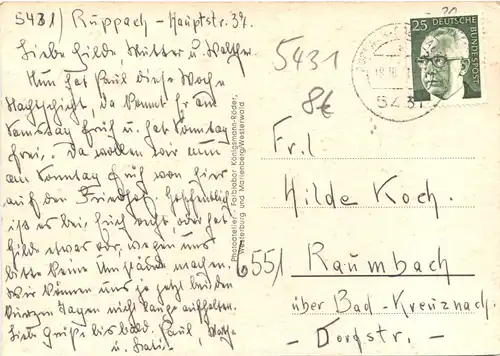 5431) Ruppach - Hauptstr. 37.
Liebe Hilde, Mutter u. Walther.
Nun hat Paul diese Woche
Nachtschicht, da kommt er am
Samstag früh u. hat Sonntag
frei. Da wollen wir nun
am Sonntag früh von hier
auf den Friedhof. Hoffentlich
ist es bei Euch recht, oder hat
Hilde etwas vor, wegen uns
bitte keine Umstände machen.
Wir können uns ja jetzt bei den
kurzen Tagen nicht lange aufhalten.
Liebe Grüße bis bald. Paul,
u.
Photoatelier - Farblabor Königsmann-Röder,
Westerburg und Marienberg/Westerwald
5431
8€
20
25 DEUTSCHE
BUNDESPOST
5431
Frl.
Hilde Koch.
6551 Raumbach
über Bad-Kreuznach.
- Dorfstr. -